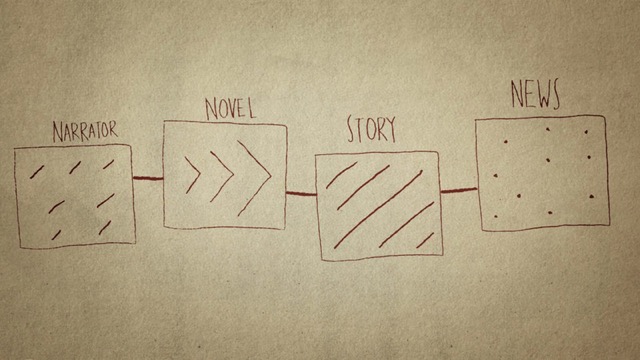 NARRATOR
NOVEL
STORY
NEWS